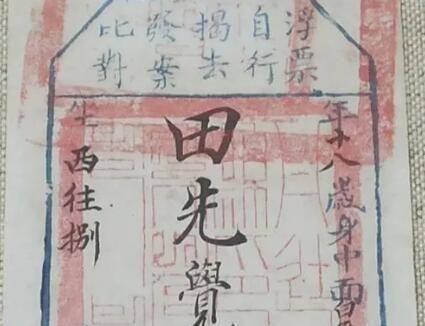 浮票
自行
揭去
發案
比對
年十八歲身中面
田先覺
生
西往捌